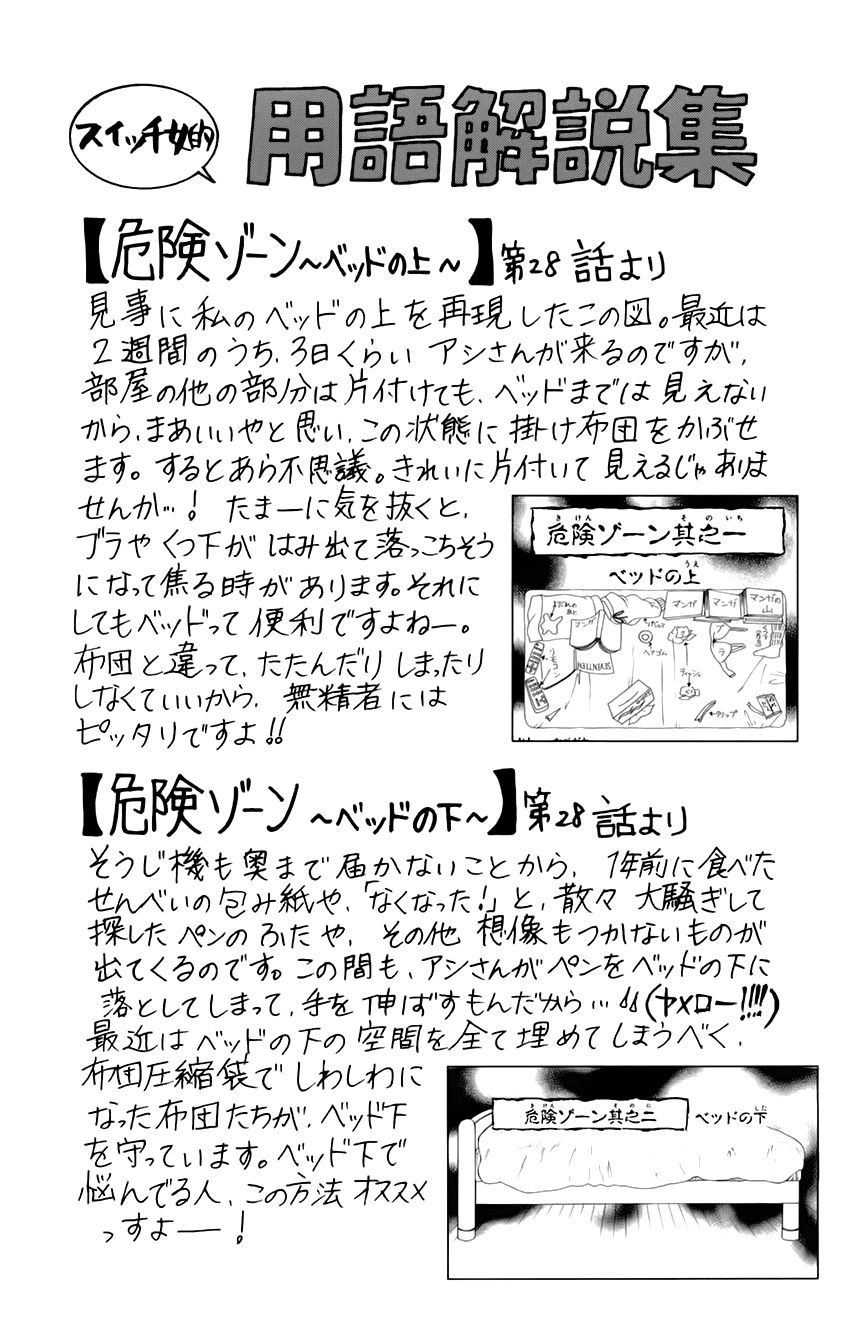 スイッチ女的
用語解説集
【危険ゾーン~ベッドの上~】第28話より
見事に私のベッドの上を再現したこの図。最近は
2週間のうち、3日くらいアシさんが来るのですが、
部屋の他の部分は片付けても、ベッドまでは見えない
から、まあいいやと思い、この状態に掛け布団をかぶせ
ます。するとあら不思議。きれいに片付いて見えるじゃありま
せんか…! たまーに気を抜くと、
ブラやくつ下がはみ出て落っこちそう
になって焦る時があります。それに
してもベッドって便利ですよねー。
布団と違って、たたんだりしまったり
しなくていいから、無精者には
ピッタリですよ!!
危険ゾーン其之一
きけん
そのいち
ベッドの上
うえ
よだれのあと
マンガ
マンガ
マンガ
マンガの山
リモコン
SEVENTEEN
ヘアゴム
ブラ
ティッシュ
クリップ
【危険ゾーン ~ベッドの下~】第28話より
そうじ機も奥まで届かないことから、1年前に食べた
せんべいの包み紙や、「なくなった!」と、散々大騒ぎして
探したペンのふたや、その他想像もつかないものが
出てくるのです。この間も、アシさんがペンをベッドの下に
落としてしまって、手を伸ばすもんだから…(ヤメロー!!!!)
最近はベッドの下の空間を全て埋めてしまうべく、
布団圧縮袋でしわしわに
なった布団たちが、ベッド下
を守っています。ベッド下で
悩んでる人、この方法オススメ
っすよー!
危険ゾーン其之二
きけん
そのに
ベッドの下
した